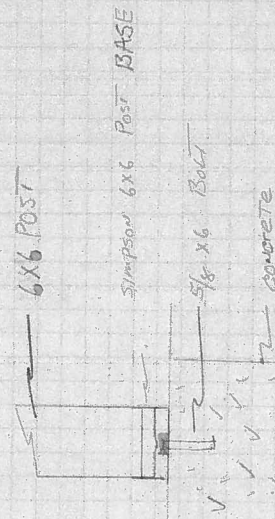 6X6 POST
SIMPSON 6X6 POST BASE
5/8 X6 BOLT
CONCRETE